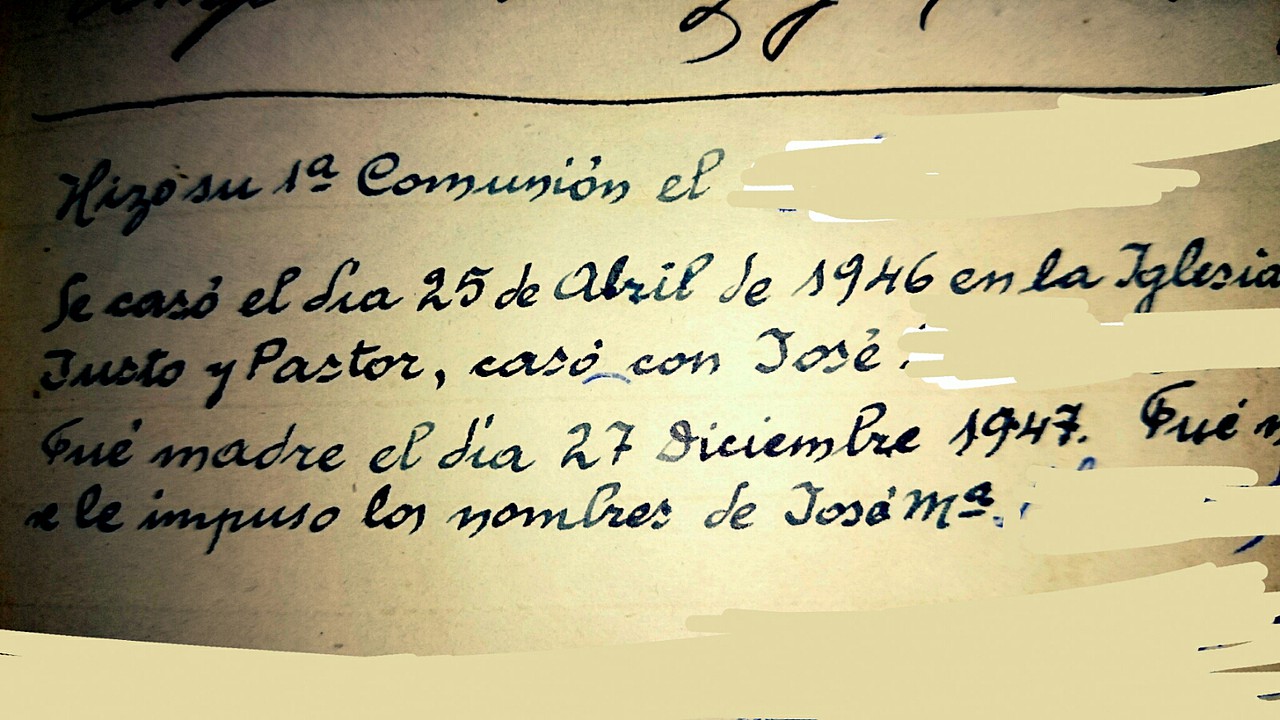 Hizo su 1ª Comunión el
Se casó el día 25 de Abril de 1946 en la Iglesia
Justo y Pastor, casó con José
Fué madre el día 27 Diciembre 1947. Fué
se le impuso los nombres de José Mª.